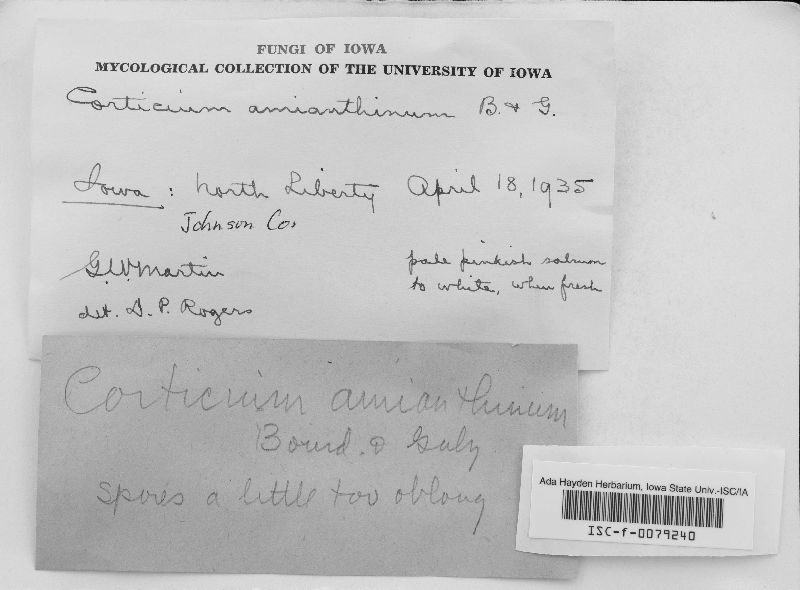 FUNGI OF IOWA
MYCOLOGICAL COLLECTION OF THE UNIVERSITY OF IOWA
Corticium amianthinum B. & G.
Iowa : North Liberty April 18, 1935
Johnson Co.
G.W. Martin
det. D. P. Rogers
pale pinkish salmon
to white, when fresh
Corticium amianthinum
Bourd. & Galz
spores a little too oblong
Ada Hayden Herbarium, Iowa State Univ.-ISC/IA
ISC-f-0079240